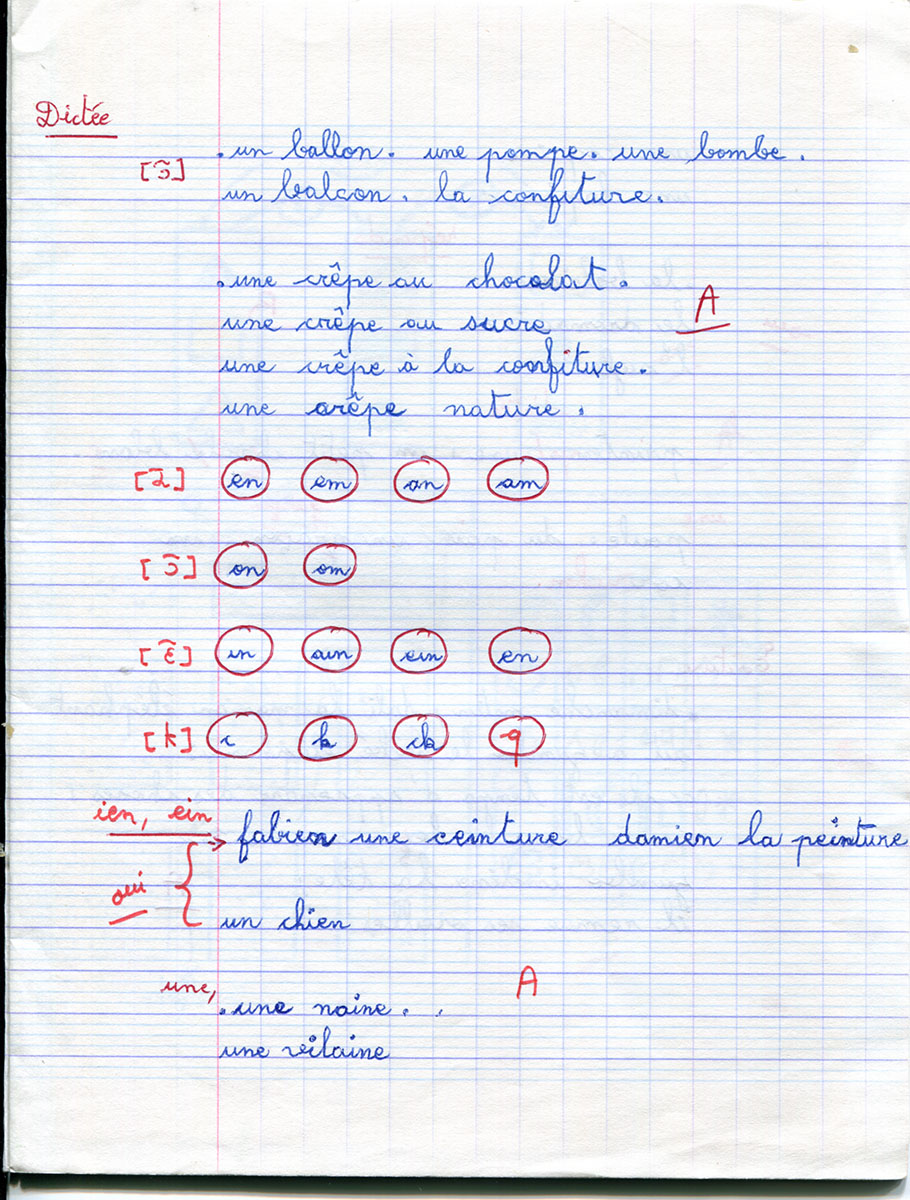 Dictée
. un ballon. une pompe. une bombe.
[ɔ̃]
un balcon. la confiture.
. une crêpe au chocolat.
A
une crêpe au sucre
une crêpe à la confiture.
une crêpe nature.
[ɑ̃] en em an am
[ɔ̃] on om
[ɛ̃] in ain ein en
[k] c k ck q
ien, ein
fabien une ceinture damien la peinture
oui
un chien
A
une,
. une naine. .
une vilaine